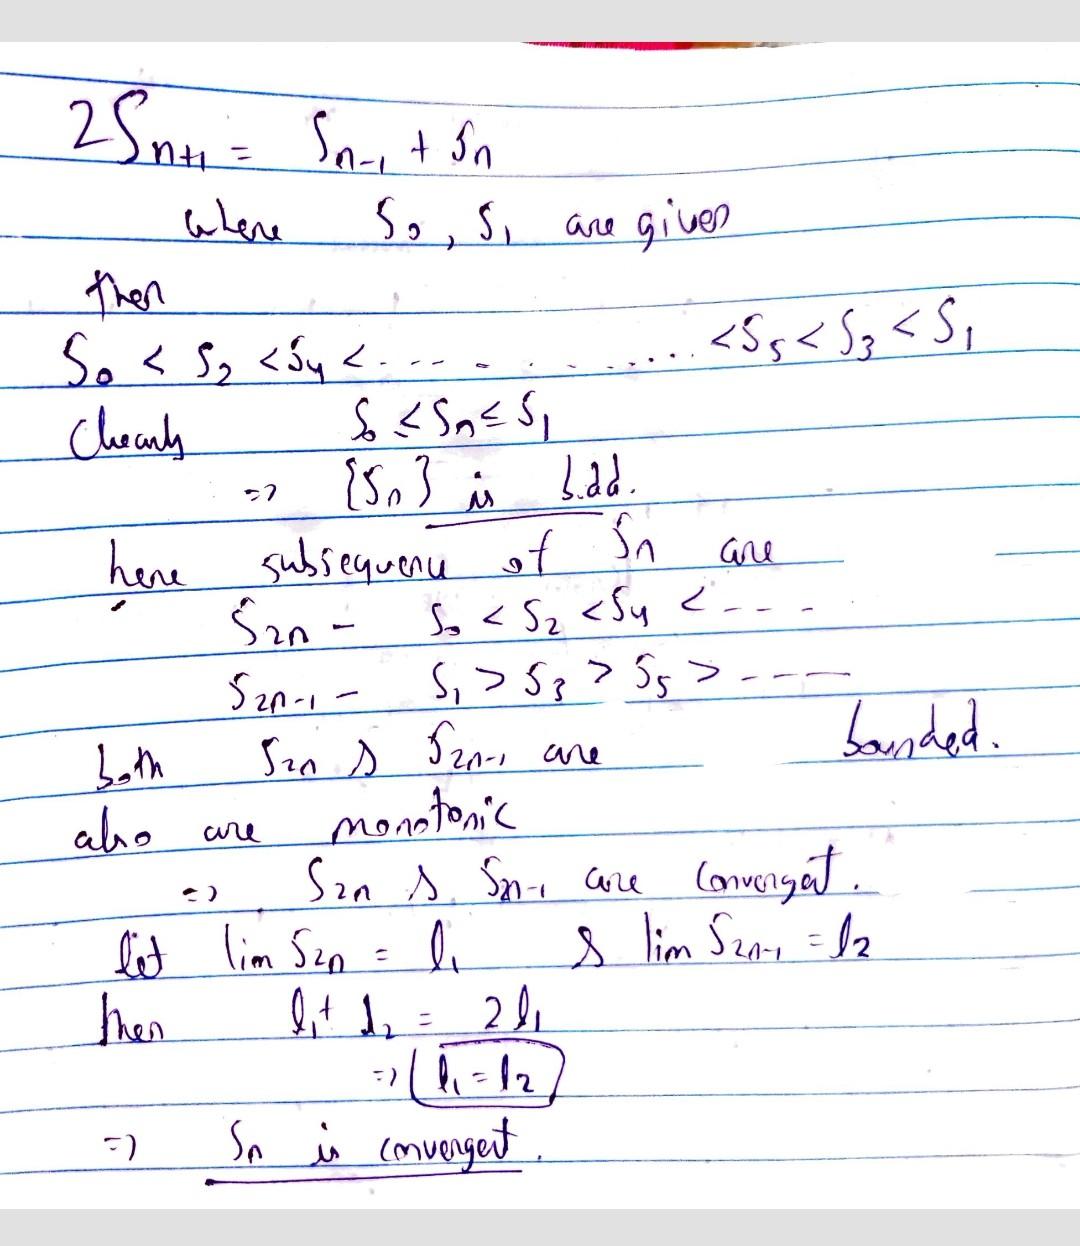 2Sn+1 = Sn-1 + Sn
where S0, S1 are given
then
S0 < S2 < S4 < - - - - . . . . . . . < S5 < S3 < S1
Clearly S0 ≤ Sn ≤ S1
=> {Sn} is b.dd.
here subsequence of Sn are
S2n - S0 < S2 < S4 < - - -
S2n-1 - S1 > S3 > S5 > - - -
both S2n & S2n-1 are bounded.
also are monotonic
=> S2n & S2n-1 are convergat.
let lim S2n = l1 & lim S2n-1 = l2
then l1 + l2 = 2l1
=> l1 = l2
=> Sn is convergent.